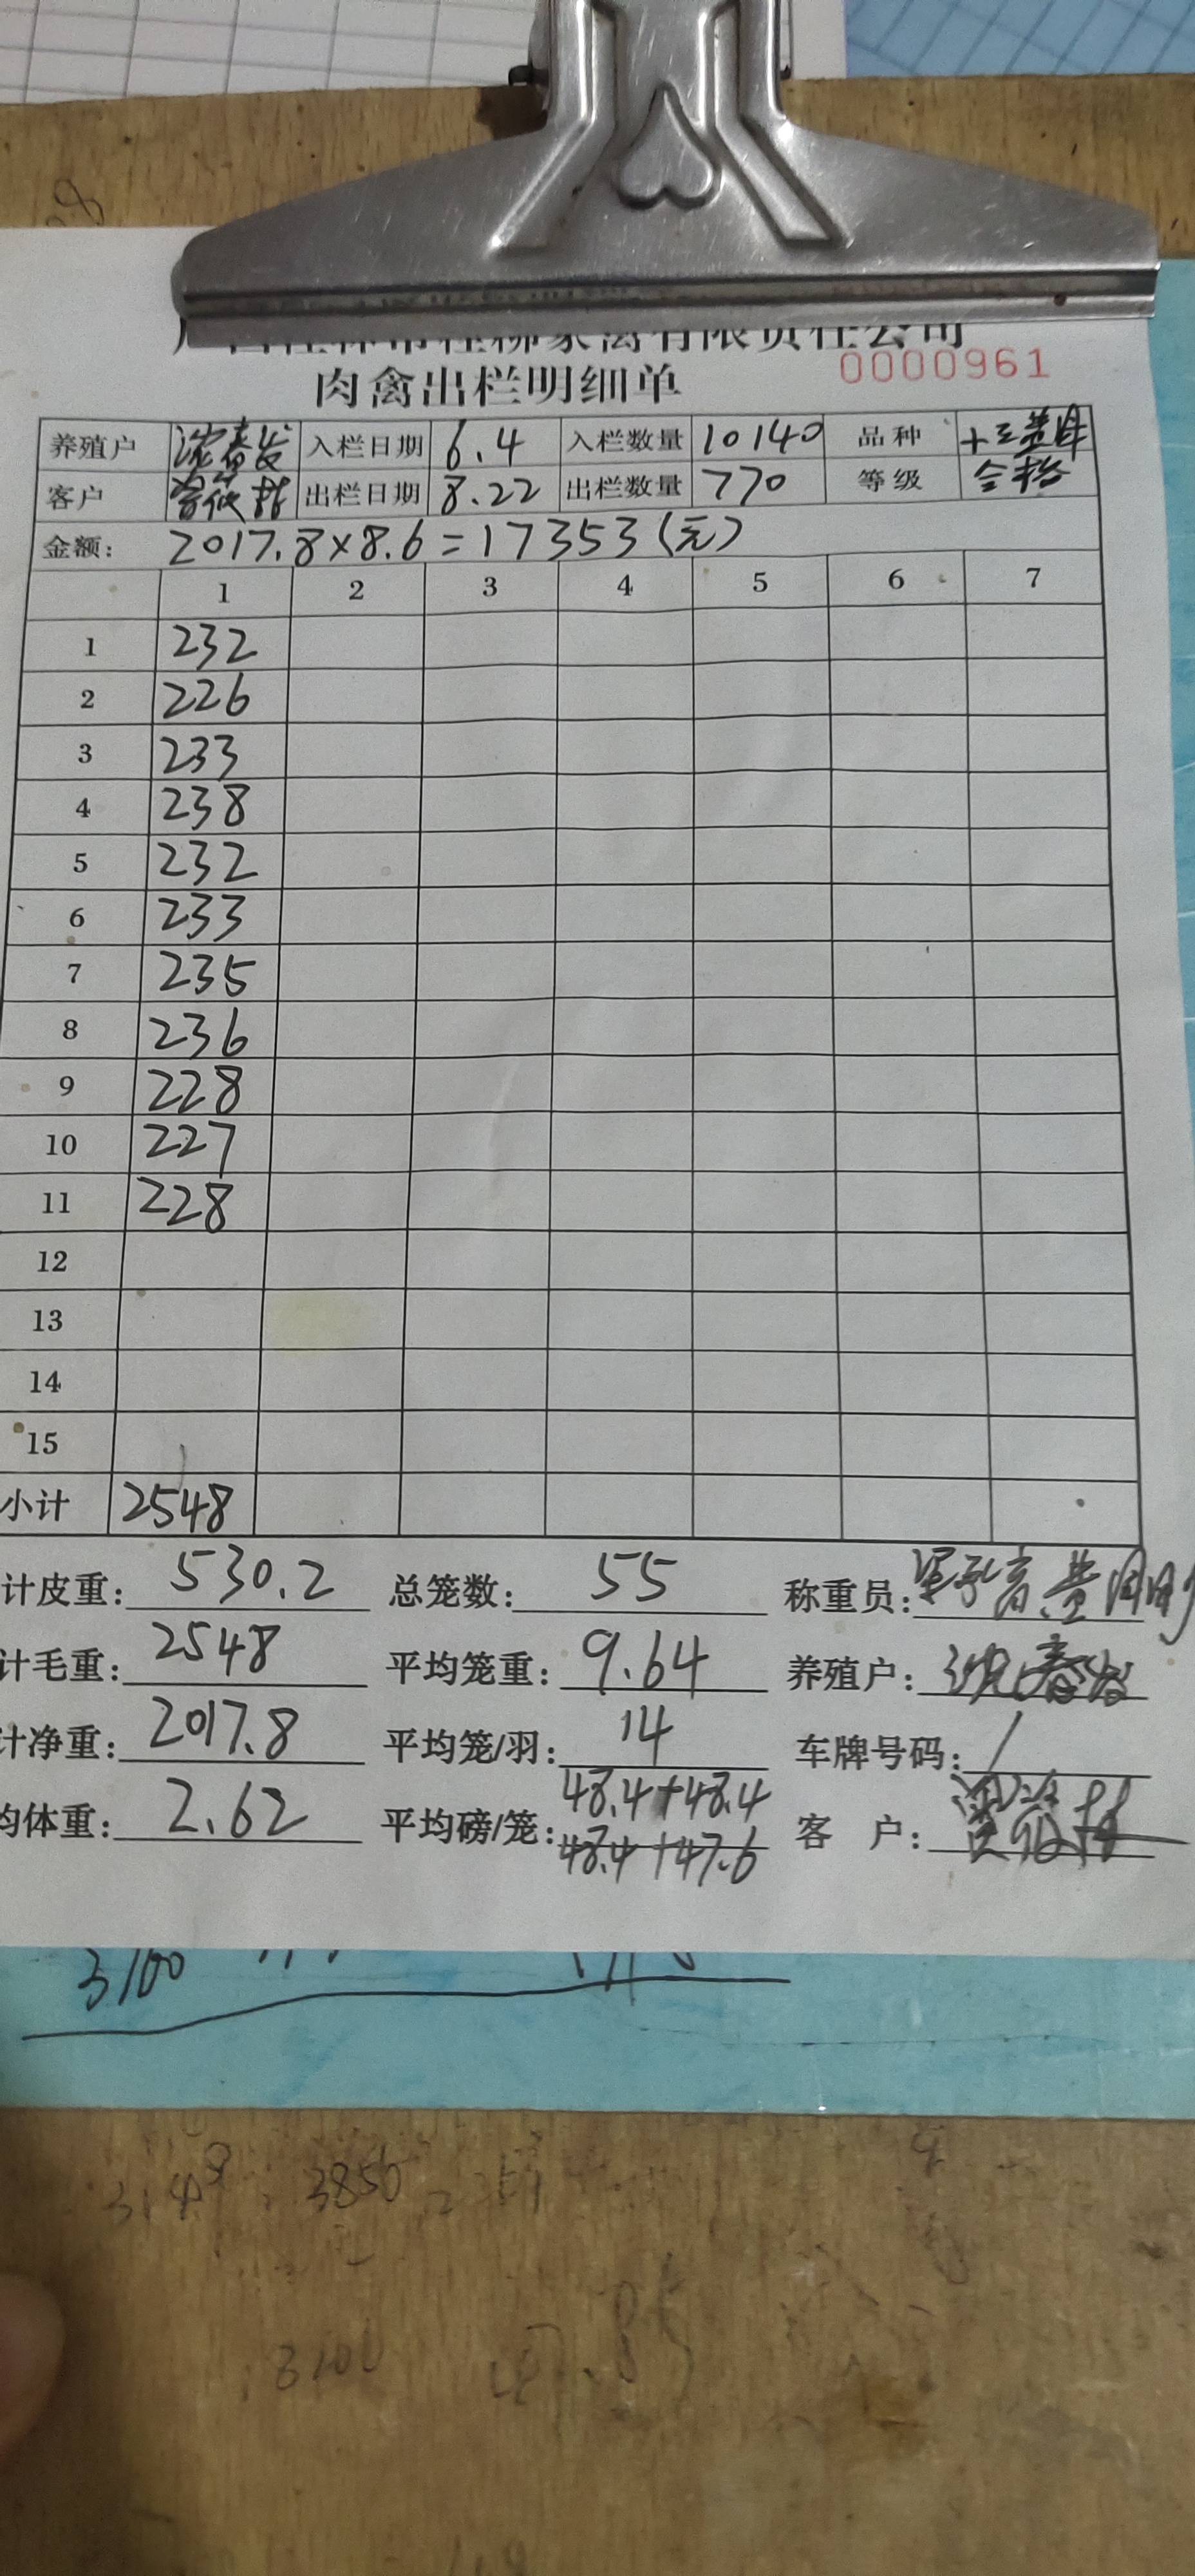 广西桂林市桂柳家禽有限责任公司
肉禽出栏明细单 0000961
养殖户 沈春发 入栏日期 6.4 入栏数量 10140 品种
客户 出栏日期 8.22 出栏数量 770 等级 合格
金额: 2017.8×8.6=17353(元)
1 2 3 4 5 6 7
1 232
2 226
3 233
4 238
5 232
6 233
7 235
8 236
9 228
10 227
11 228
12
13
14
15
小计 2548
计皮重: 530.2 总笼数: 55 称重员:
计毛重: 2548 平均笼重: 9.64 养殖户: 沈春发
计净重: 2017.8 平均笼/羽: 14 车牌号码: /
均体重: 2.62 平均磅/笼: 48.4+48.4 客户:
48.4+47.6
3100
3850
3100